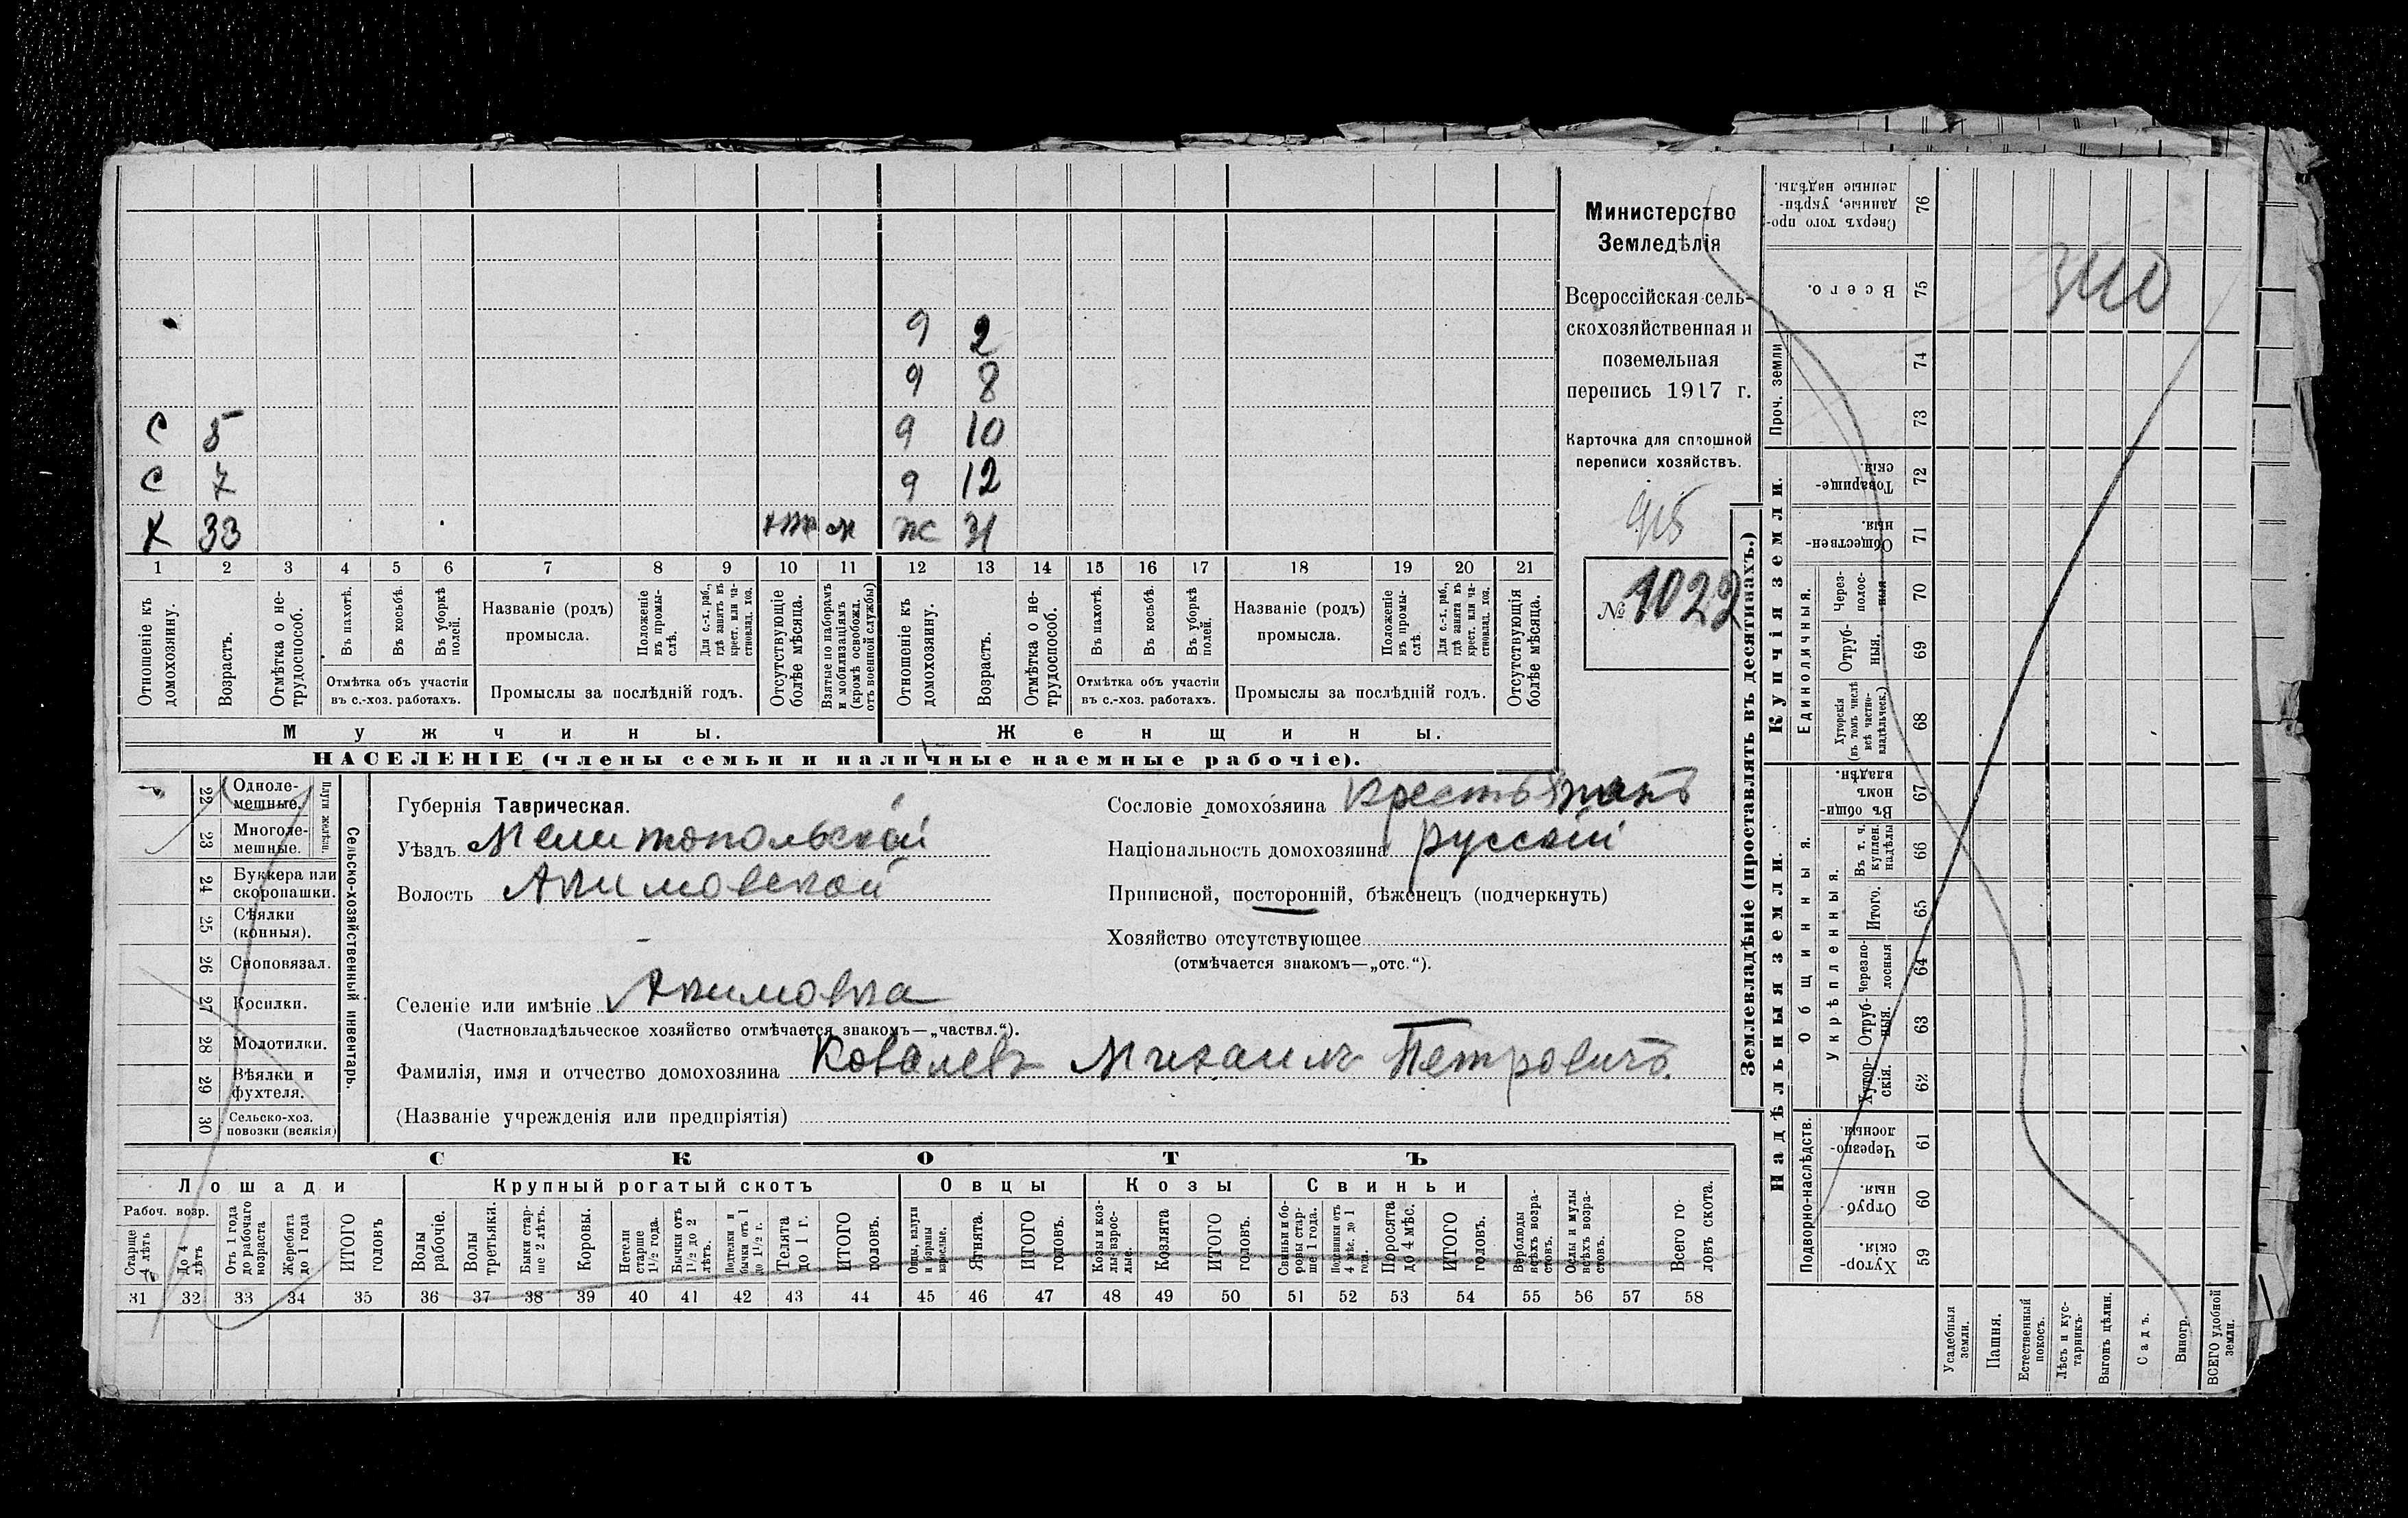 Министерство
Земледѣлія
Всероссійская сель-
скохозяйственная и
поземельная
перепись 1917 г.
Карточка для сплошной
переписи хозяйствъ.
915
№ 1022
9 2
9 8
С 5 9 10
С 7 9 12
Х 33 м ж 31
1 2 3 4 5 6 7 8 9 10 11 12 13 14 15 16 17 18 19 20 21
Отношеніе къ домохозяину.
Возрастъ.
Отмѣтка о не-трудоспособ.
Въ пахотѣ.
Въ косьбѣ.
Въ уборкѣ полей.
Отмѣтка объ участіи
въ с.-хоз. работахъ.
Названіе (родъ)
промысла.
Положеніе въ промы-слѣ.
Для с.-х. раб., гдѣ занятъ въ крест. или ча-стновлад. хоз.
Промыслы за послѣдній годъ.
Отсутствующіе болѣе мѣсяца.
Взятые по наборамъ и мобилизаціямъ (кромѣ освобожд. отъ военной службы)
Отношеніе къ домохозяину.
Возрастъ.
Отмѣтка о не-трудоспособ.
Въ пахотѣ.
Въ косьбѣ.
Въ уборкѣ полей.
Отмѣтка объ участіи
въ с.-хоз. работахъ.
Названіе (родъ)
промысла.
Положеніе въ промы-слѣ.
Для с.-х. раб., гдѣ занята въ крест. или ча-стновлад. хоз.
Промыслы за послѣдній годъ.
Отсутствующія болѣе мѣсяца.
Мужчины. Женщины.
НАСЕЛЕНІЕ (члены семьи и наличные наемные рабочіе).
22 Одноле-мешные.
23 Многоле-мешные.
Плуги желѣзн.
24 Буккера или скоропашки.
25 Сѣялки (конныя).
26 Сноповязал.
27 Косилки.
28 Молотилки.
29 Вѣялки и фухтеля.
30 Сельско-хоз. повозки (всякія)
Сельско-хозяйственный инвентарь.
Губернія Таврическая.
Уѣздъ Мелитопольской
Волость Акимовской
Селеніе или имѣніе Акимовка
(Частновладѣльческое хозяйство отмѣчается знакомъ—„частвл.“).
Фамилія, имя и отчество домохозяина Ковалевъ Михаилъ Петровичъ.
(Названіе учрежденія или предпріятія)
Сословіе домохозяина крестьянинъ
Національность домохозяина русскій
Приписной, посторонній, бѣженецъ (подчеркнуть)
Хозяйство отсутствующее
(отмѣчается знакомъ—„отс.“).
СКОТЪ
Лошади Крупный рогатый скотъ Овцы Козы Свиньи
Рабоч. возр.
Старше 4 лѣтъ
До 4 лѣтъ
Отъ 1 года до рабочаго возраста
Жеребята до 1 года
ИТОГО головъ
Волы рабочіе.
Волы третьяки.
Быки стар-ше 2 лѣтъ.
Коровы.
Нетели старше 1½ года.
Бычки отъ 1½ до 2 лѣтъ.
Подтелки и бычки отъ 1 до 1½ г.
Телята до 1 г.
ИТОГО головъ.
Овцы, валухи и бараны взрослые.
Ягнята.
ИТОГО головъ.
Козы и коз-лы взрос-лые.
Козлята
ИТОГО головъ.
Свиньи и бо-ровы стар-ше 1 года.
Подсвинки отъ 4 мѣс. до 1 года.
Поросята до 4 мѣс.
ИТОГО головъ.
Верблюды всѣхъ возра-стовъ.
Ослы и мулы всѣхъ возра-стовъ.
Всего го-ловъ скота.
31 32 33 34 35 36 37 38 39 40 41 42 43 44 45 46 47 48 49 50 51 52 53 54 55 56 57 58
Землевладѣніе (проставлять въ десятинахъ.)
Надѣльныя земли. Купчія земли. Проч. земли
Подворно-наслѣдств.
Общинныя.
Укрѣпленныя.
Единоличныя.
Сверхъ того про-данные, укрѣп-ленные надѣлы. 76
Всего. 75
74
73
Товарище-скія. 72
Обществен-ныя. 71
Через-полос-ныя 70
Отруб-ныя. 69
Хуторскія (въ томъ числѣ всѣ частно-владѣльческ.) 68
Въ общи-номъ владѣн. 67
Въ т. ч. куплен. надѣлы 66
Итого. 65
Черезпо-лосныя 64
Отруб-ныя. 63
Хутор-скія. 62
Черезпо-лосныя. 61
Отруб-ныя. 60
Хутор-скія. 59
Усадебныя земли.
Пашня.
Естественный покосъ.
Лѣсъ и кус-тарникъ.
Выгонъ цѣлин.
Садъ.
Виногр.
ВСЕГО удобной земли.